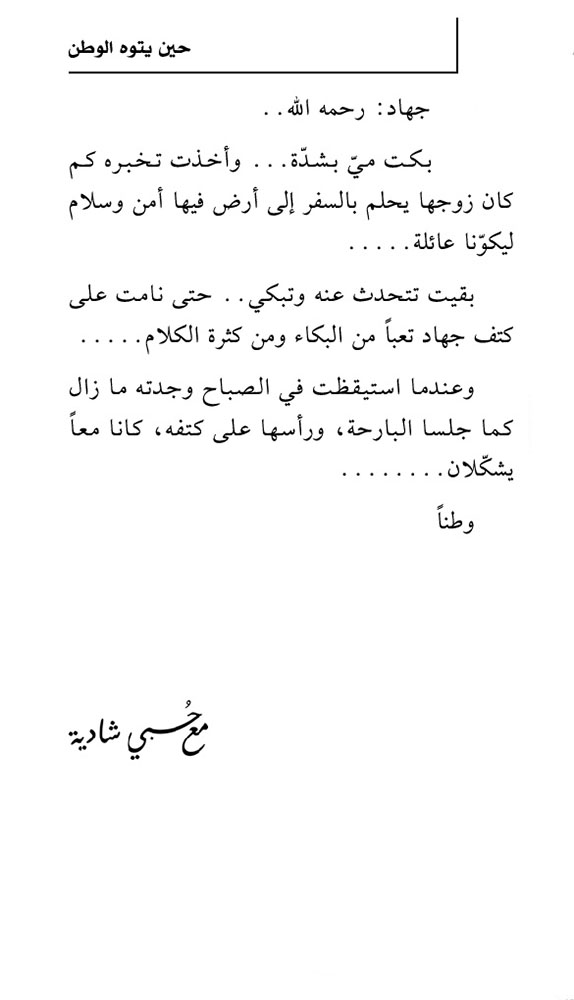 حين يتوه الوطن
جهاد: رحمه الله..
بكت ميّ بشدّة... وأخذت تخبره كم
كان زوجها يحلم بالسفر إلى أرض فيها أمن وسلام
ليكوّنا عائلة.....
بقيت تتحدث عنه وتبكي.. حتى نامت على
كتف جهاد تعباً من البكاء ومن كثرة الكلام.....
وعندما استيقظت في الصباح وجدته ما زال
كما جلسا البارحة، ورأسها على كتفه، كانا معاً
يشكّلان........
وطناً
مع حُبي شادية